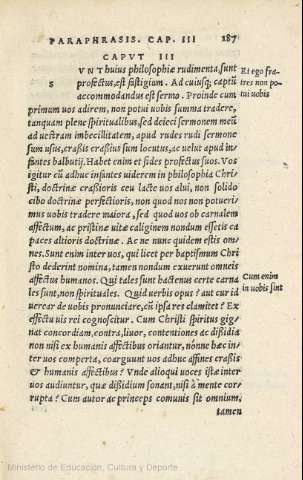 PARAPHRASIS. CAP. III 187
CAPVT III
SVNT huius philosophiæ rudimenta, sunt
profectus, est fastigium. Ad cuiusq; captũ
accommodandus est sermo. Proinde cum
primum uos adirem, non potui uobis summa tradere,
tanquam plene spiritualibus, sed deieci sermonem meũ
ad uestram imbecillitatem, apud rudes rudi sermone
sum usus, crassis crassius sum locutus, ac uelut apud in
fantes balbutij. Habet enim et fides profectus suos. Vos
igitur cũ adhuc infantes uiderem in philosophia Chri
sti, doctrinæ crassioris ceu lacte uos alui, non solido
cibo doctrinæ perfectioris, non quod nos non potueri-
mus uobis tradere maiora, sed quod uos ob carnalem
affectum, ac pristinæ uitæ caliginem nondum essetis ca
paces altioris doctrinæ. Ac ne nunc quidem estis om=
nes. Sunt enim inter uos, qui licet per baptismum Chri
sto dederint nomina, tamen nondum exuerunt omneis
affectus humanos. Qui tales sunt hactenus certe carna
les sunt, non spirituales. Quid uerbis opus? aut cur is
uerear de uobis pronunciare, cũ ipsa res clamitet? Ex
effectu uis rei cognoscitur. Cum Christi spiritus gig=
nat concordiam, contra, liuor, contentiones ac dissidia
non nisi ex humanis affectibus oriantur, nõnne hæc in=
ter uos comperta, coarguunt uos adhuc affines crassis
& humanis affectibus? Vnde alioqui uoces istæ inter
uos audiuntur, quæ dissidium sonant, nisi à mente cor=
rupta? Cum autor ac princeps comunis sit omnium,
tamen
Et ego fra=
tres non po=
tui uobis
Cum enim
in uobis sint
Ministerio de Educación, Cultura y Deporte